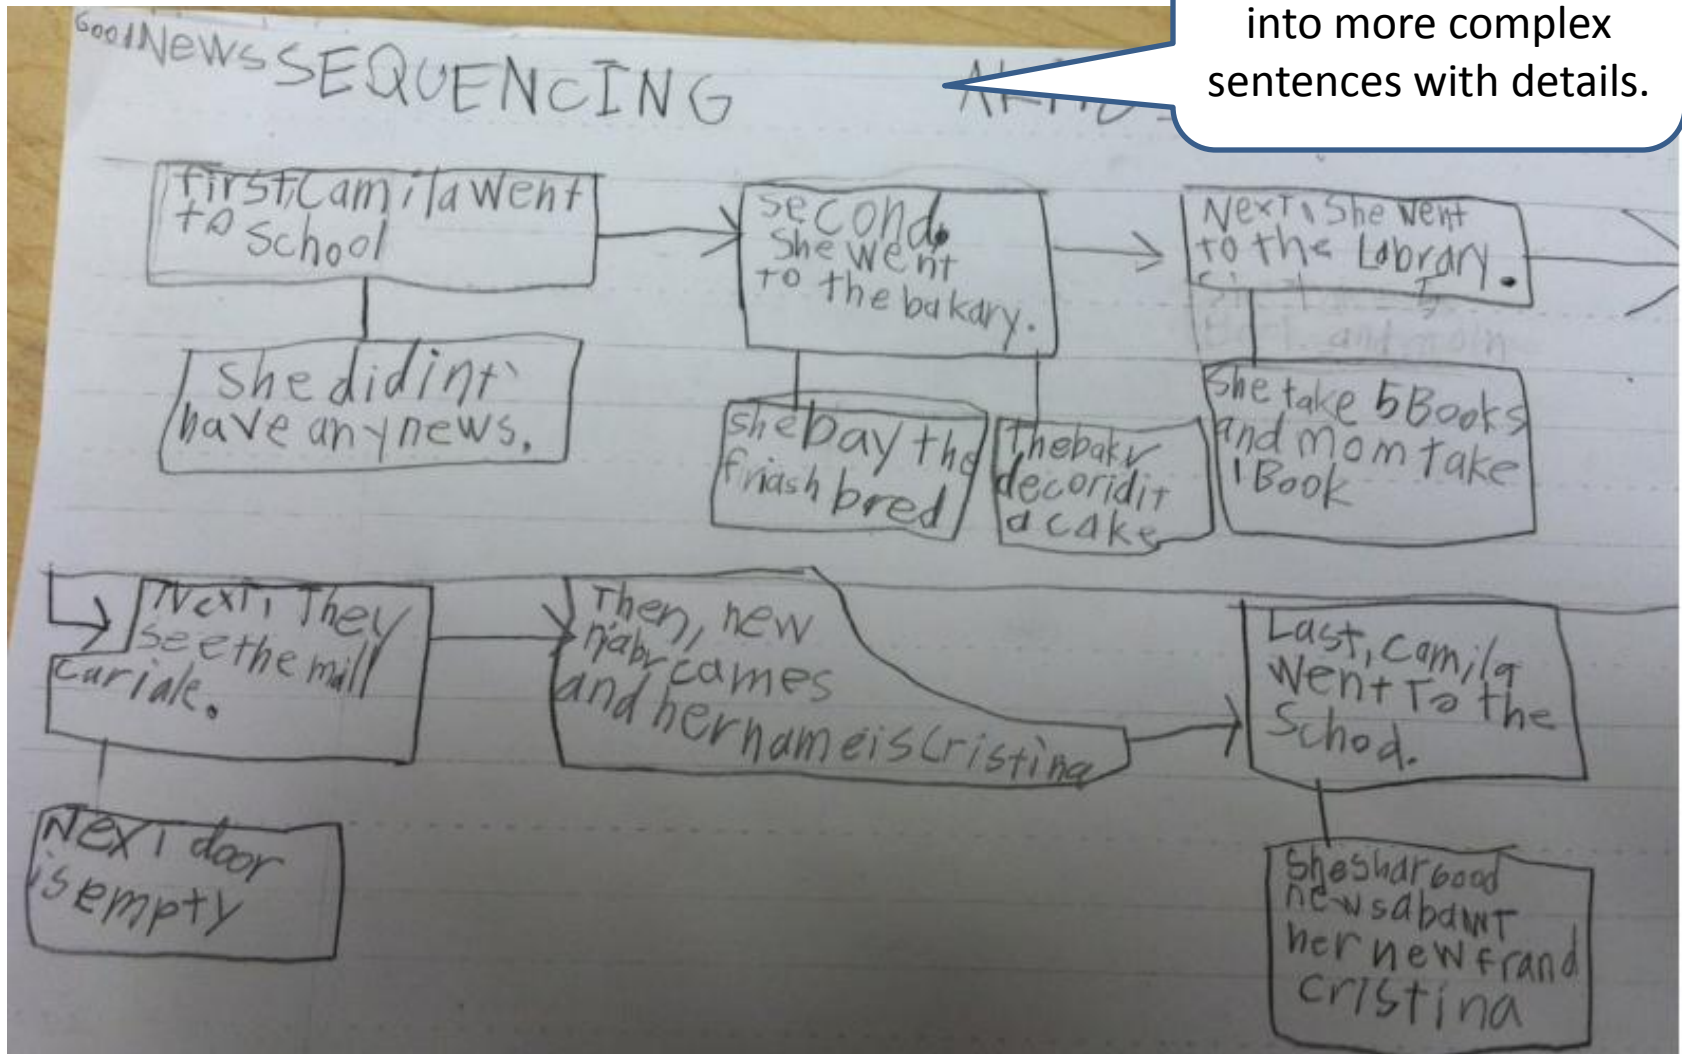 into more complex
sentences with details.
Good News SEQUENCING
first, Camila went
to School
She didint
have any news.
Second,
She went
to the bakary.
she bay the
friash bred
the bakr
decoridit
a cake
Next, She went
to the Labrary.
She take 5 Books
and mom take
1 Book
Next, They
see the mall
cariale.
Next door
is empty
Then, new
njabr cames
and her name is Cristina
Last, Camila
went To the
School.
She shar Good
news abawt
her new frand
cristina